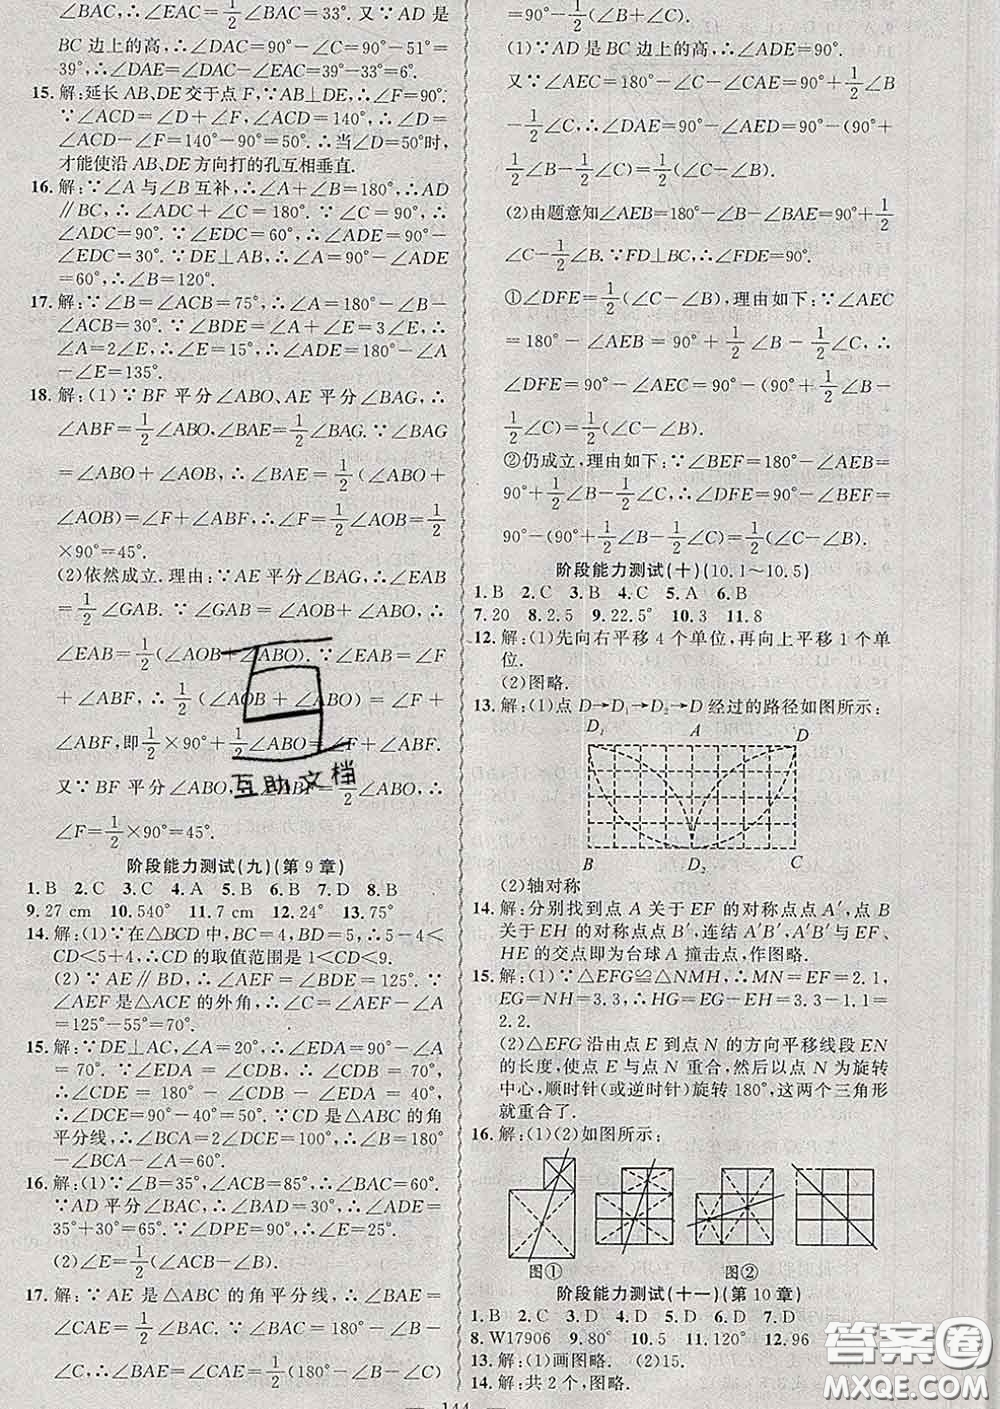 ∠BAC=66°,∴∠CAE=1/2∠BAC=33°. 又∵AD是
BC边上的高,∴∠DAC=90°−∠C=90°−51°=
39°,∴∠DAE=∠DAC−∠CAE=39°−33°=6°.
15. 解:延长AB、DE交于点F,∵AB⊥DE,∴∠F=90°.
∵∠ACD=∠D+∠F,∠ACD=140°,∴∠D=
∠ACD−∠F=140°−90°=50°.∴当∠D=50°时,
才能使沿AB、DE方向打的孔互相垂直.
16. 解:∵∠A与∠B互补,∴∠A+∠B=180°,∴AD
∥BC,∴∠ADC+∠C=180°.∵∠C=90°,∴
∠ADC=90°.∵∠EDC=60°,∴∠ADE=90°−
∠EDC=30°.∵DE⊥AB,∴∠A=90°−∠ADE=
60°,∴∠B=120°.
17. 解:∵∠B=∠ACB=75°,∴∠A=180°−∠B−
∠ACB=30°.∵∠BDE=∠A+∠E=3∠E,∴
∠A=2∠E,∴∠E=15°,∴∠ADE=180°−∠A
−∠E=135°.
18. 解:(1)∵BF平分∠ABO、AE平分∠BAG,∴
∠ABF=1/2∠ABO,∠BAE=1/2∠BAG.∵∠BAG
=∠ABO+∠AOB,∴∠BAE=1/2(∠ABO+
∠AOB)=∠F+∠ABF,∴∠F=1/2∠AOB=1/2
×90°=45°.
(2)依然成立.理由:∵AE平分∠BAG,∴∠EAB
=1/2∠GAB.∵∠GAB=∠AOB+∠ABO,∴
∠EAB=1/2(∠AOB+∠ABO).∵∠EAB=∠F
+∠ABF,∴1/2(∠AOB+∠ABO)=∠F+
∠ABF,即1/2×90°+1/2∠ABO=∠F+∠ABF.
又∵BF平分∠ABO,∴∠ABF=1/2∠ABO,∴
∠F=1/2×90°=45°.
阶段能力测试(九)(第9章)
1. B 2. C 3. C 4. A 5. B 6. B 7. D 8. B
9. 27 cm 10. 540° 11. 7 cm 12. 24° 13. 75°
14. 解:(1)∵在△BCD中,BC=4,BD=5,∴5−4<
CD<5+4,∴CD的取值范围是1<CD<9.
(2)∵AE∥BD,∴∠AEF=∠BDE=125°.
∵∠AEF是△ACE的外角,∴∠C=∠AEF−∠A
=125°−55°=70°.
15. 解:∵DE⊥AC,∠A=20°,∴∠EDA=90°−∠A
=70°.∵∠EDA=∠CDB,∴∠CDB=70°,∴
∠CDE=180°−∠CDB−∠EDA=40°,∴
∠DCE=90°−40°=50°.∵CD是△ABC的角
平分线,∴∠BCA=2∠DCE=100°,∴∠B=180°
−∠BCA−∠A=60°.
16. 解:(1)∵∠B=35°,∠ACB=85°,∴∠BAC=60°.
∵AD平分∠BAC,∴∠DAC=30°,∴∠ADE=
35°+30°=65°.∵∠DPE=90°,∴∠E=25°.
(2)∠E=1/2(∠ACB−∠B).
17. 解:∵AE是△ABC的角平分线,∴∠BAE=
∠CAE=1/2∠BAC.∵∠BAC=180°−∠B−
∠C,∴∠BAE=∠CAE=1/2(180°−∠B−∠C)
(1)∵AD是BC边上的高,∴∠ADE=90°.
又∵∠AEC=180°−∠C−∠CAE=90°+1/2∠B
−1/2∠C,∴∠DAE=90°−∠AED=90°−(90°+
1/2∠B−1/2∠C)=1/2(∠C−∠B).
(2)由题意知∠AEB=180°−∠B−∠BAE=90°+1/2
∠C−1/2∠B.∵FD⊥BC,∴∠FDE=90°.
①∠DFE=1/2(∠C−∠B),理由如下:∵∠AEC
=180°−∠AEB=90°+1/2∠B−1/2∠C,∴
∠DFE=90°−∠AEC=90°−(90°+1/2∠B−
1/2∠C)=1/2(∠C−∠B).
②仍成立,理由如下:∵∠BEF=180°−∠AEB=
90°+1/2∠B−1/2∠C,∴∠DFE=90°−∠BEF=
90°−(90°+1/2∠B−1/2∠C)=1/2(∠C−∠B).
阶段能力测试(十)(10.1~10.5)
1. B 2. C 3. B 4. C 5. A 6. B
7. 20 8. 2.5 9. 22.5° 10. 3 11. 8
12. 解:(1)先向右平移4个单位,再向上平移1个单
位.
(2)图略.
13. 解:(1)点D→D₁→D₂→D经过的路径如图所示:
D₁ A D
B D₂ C
(2)轴对称
14. 解:分别找到点A关于EF的对称点点A′,点B
关于EH的对称点点B′,连结A′B′,A′B′与EF、
HE的交点即为台球A撞击点,作图略.
15. 解:(1)∵△EFG≌△NMH,∴MN=EF=2.1,
EG=NH=3.3,∴HG=EG−EH=3.3−1.1=
2.2.
(2)△EFG沿由点E到点N的方向平移线段EN
的长度,使点E与点N重合,然后以点N为旋转
中心,顺时针(或逆时针)旋转180°,这两个三角形
就重合了.
16. 解:(1)(2)如图所示:
图① 图②
阶段能力测试(十一)(第10章)
1. B 2. C 3. D 4. D 5. D 6. D 7. D
8. W17906 9. 80° 10. 5 11. 120° 12. 96
13. 解:(1)画图略. (2)15.
14. 解:共2个,图略.
— 144 —
互助文档
答案圈
MXQE.COM